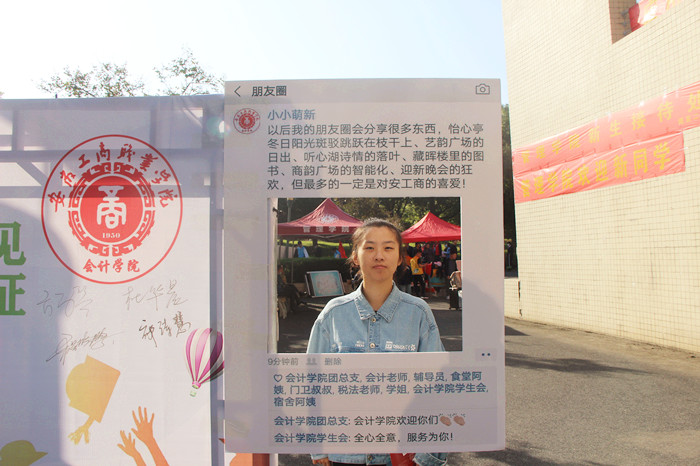 朋友圈
小小萌新
以后我的朋友圈会分享很多东西，怡心亭
冬日阳光斑驳跳跃在枝干上、艺韵广场的
日出、听心湖诗情的落叶、藏晖楼里的图
书、商韵广场的智能化、迎新晚会的狂
欢，但最多的一定是对安工商的喜爱！
管理学院
9分钟前 删除
会计学院团总支, 会计老师, 辅导员, 食堂阿
姨, 门卫叔叔, 税法老师, 学姐, 会计学院学生会,
宿舍阿姨
会计学院团总支: 会计学院欢迎你们👏👏
会计学院学生会: 全心全意，服务为你!
安徽工商职业学院
商
1950
会计学院
见
证
新同学